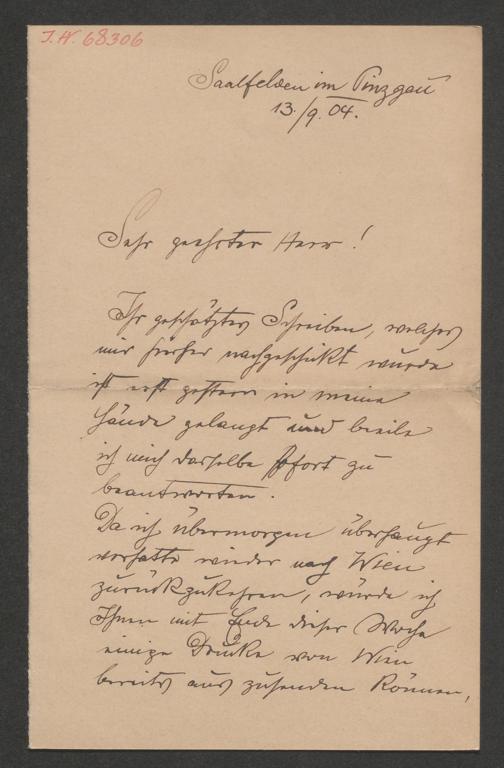 J.N. 68306
Saalfelden im Pinzgau
13./9. 04.
Sehr geehrter Herr!
Ihr geschätztes Schreiben, welches
mir hierher nachgeschickt wurde
ist erst gestern in meine
Hände gelangt und beeile
ich mich dasselbe sofort zu
beantworten.
Da ich übermorgen überhaupt
vorhatte wieder nach Wien
zurückzukehren, würde ich
Ihnen mit Ende dieser Woche
einige Drucke von Wien
bereits aus zusenden können,